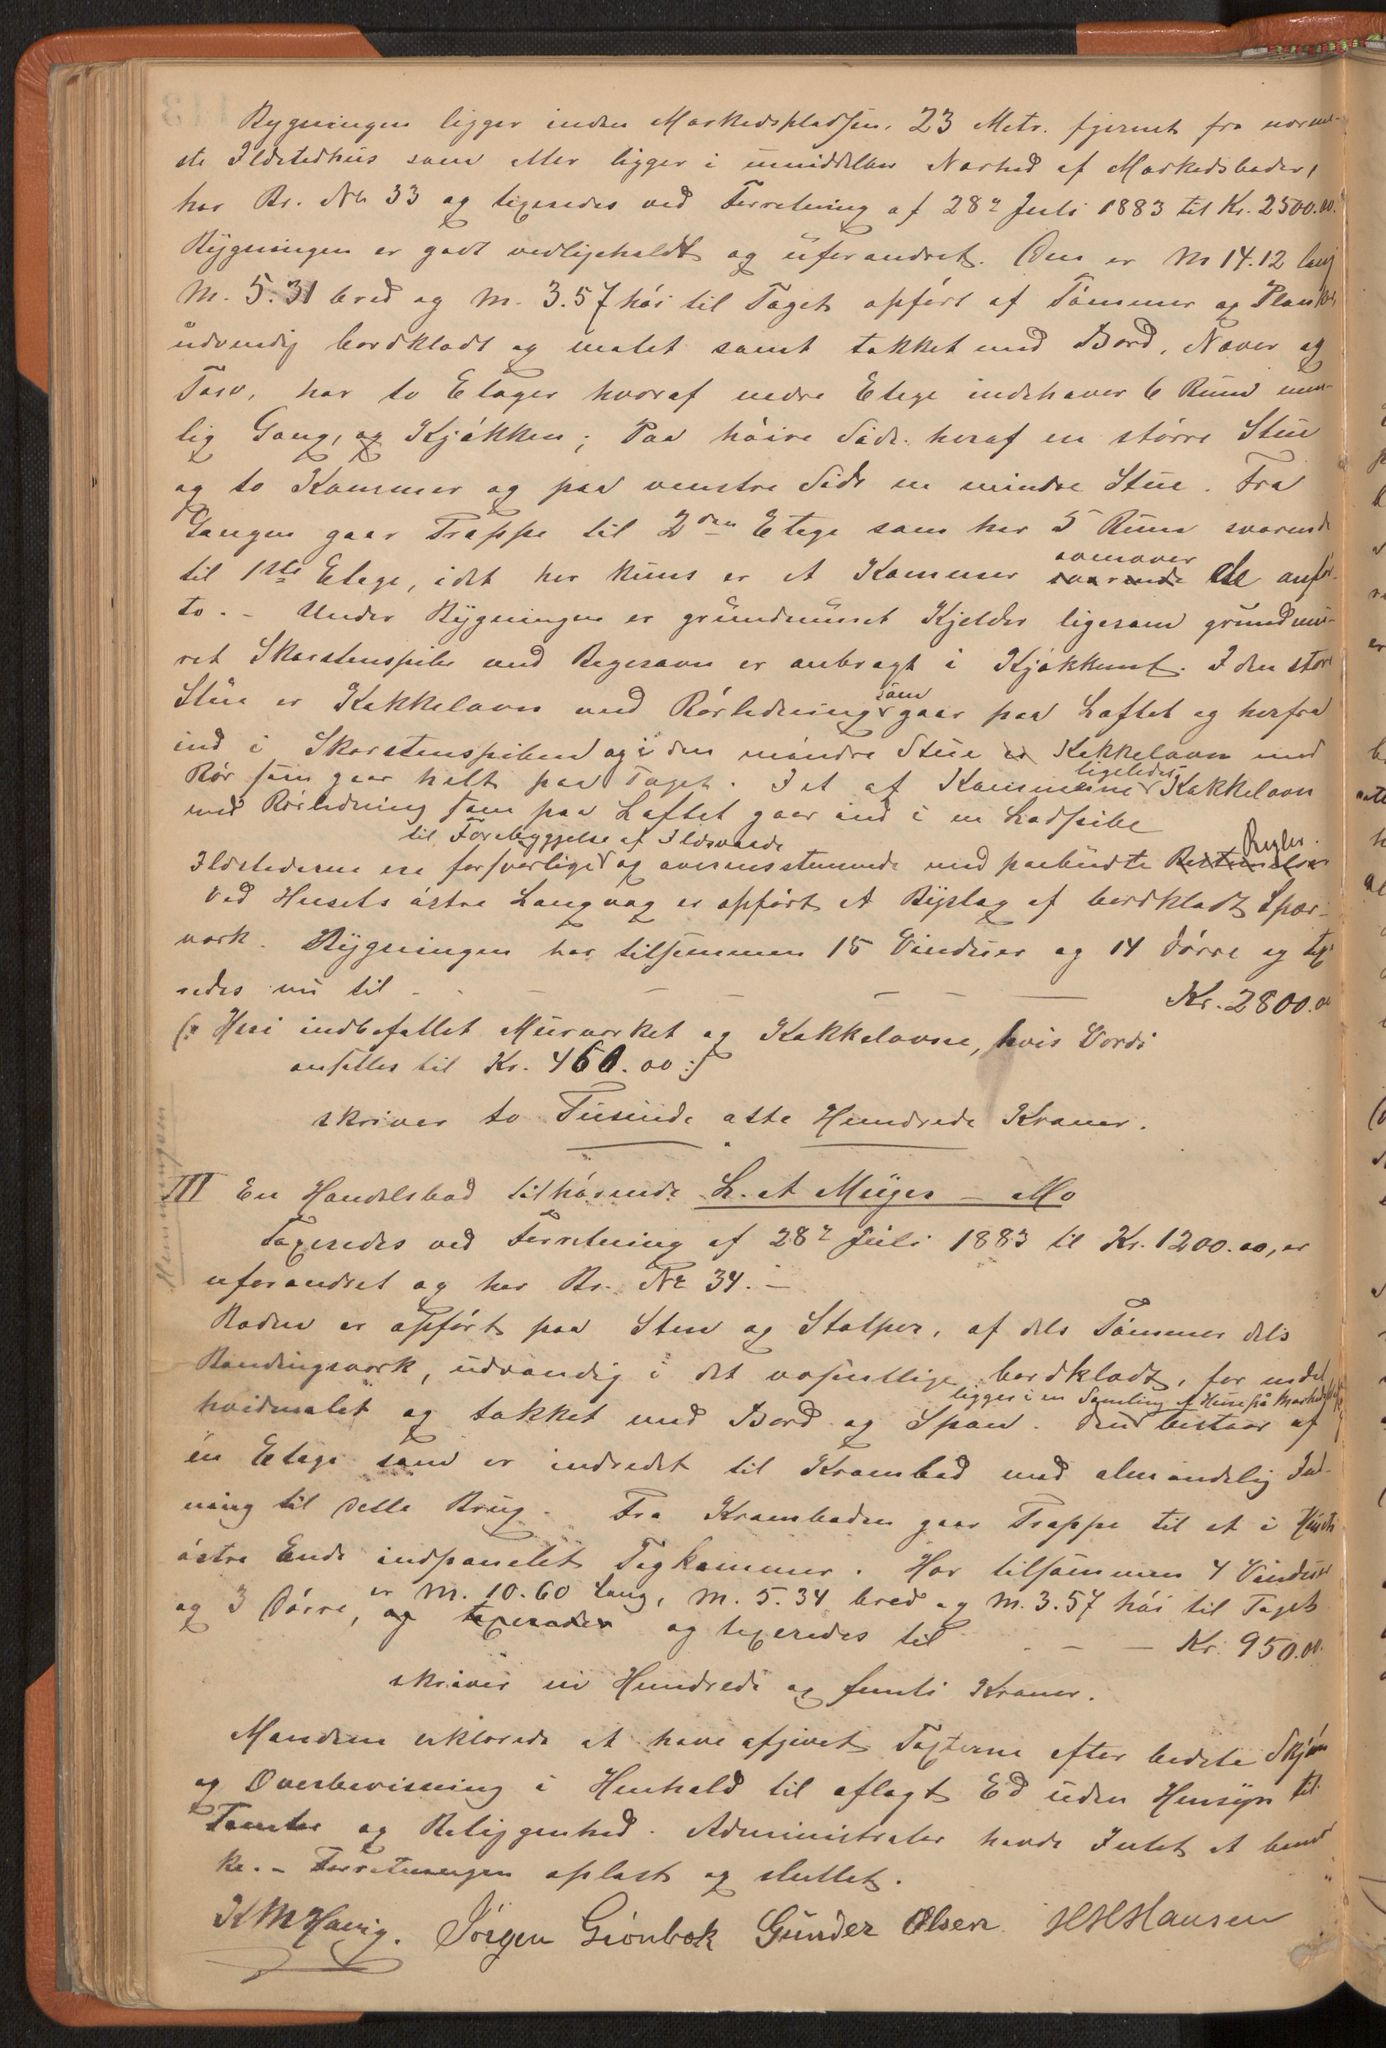 Bygningen ligger inden Markedspladsen, 23 Metr. fjernet fra nærme-
ste Ildstedhus som eller ligger i umiddelbar Nærhed af Markedsboder,
har Br. No 33 og taxeredes ved Forretning af 28de Juli 1883 til Kr. 2500.00.
Bygningen er godt vedligeholdt og uforandret. Den er M 14.12 lang
M. 5.31 bred og M. 3.57 høi til Taget opført af Tømmer og Planker
udvendig bordklædt og malet samt tækket med Bord, Næver og
Torv, har to Etager hvoraf nedre Etage indehaver 6 Rum nem-
lig Gang, og Kjøkken; Paa høire Side heraf en større Stue
og to Kammer og paa venstre Side en mindre Stue. Fra
Gangen gaar Trappe til 2den Etage som har 5 Rum svarende
til 1ste Etage, idet her kuns er et Kammer ovenover de anfør-
te. – Under Bygningen er grundmuret Kjelder ligesom grundmu-
ret Skorstenspibe med Bageravn er anbragt i Kjøkkenet. I den store
Stue er Kakkelovn med Rørledning som gaar paa Loftet og herfra
ind i Skorstenspiben og i den mindre Stue er Kakkelovn med
Rør som gaar helt paa Taget. I et af Kammerne ligeledes Kakkelovn
med Rørledning som paa Loftet gaar ind i en Ladpibe
til Forebyggelse af Ildsvaade
Ildstederne ere forsvarlige og overensstemmende med paabudte Regler.
Ved Husets østre Langvæg er opført et Bislag af bordklædt Spær-
værk. Bygningen har tilsammen 15 Vinduer og 14 Dørre og tax-
eredes nu til - - - - - - Kr. 2800.00
(: Heri indbefattet Murværket og Kakkelovne, hvis Værdi
ansættes til Kr. 450.00 :)
skriver to Tusinde otte Hundrede Kroner.
Hemmingsen
III En Handelsbod tilhørende L. A Meyer – Mo
Taxeredes ved Forretning af 28de Juli 1883 til Kr. 1200.00, er
uforandret og har Br. No 34. –
Boden er opført paa Sten og Stolper, af dels Tømmer dels
Bindingsværk, udvendig i det væsentlige bordklædt, for endel
hvidmalet og tækket med Bord og Spaan. ligger i en Samling af Huse på Markedspl. Den bestaar af
én Etage som er indredet til Krambod med almindelig Ind-
ning til dette Brug. Fra Kramboden gaar Trappe til et i Husets
østre Ende indpanelet Tagkammer. Har tilsammen 4 Vinduer
og 3 Dørre, er M. 10.60 lang, M. 5.34 bred og M. 3.57 høi til Taget
og taxeredes og taxeredes til - - - Kr. 950.00.
skriver ni Hundrede og femti Kroner.
Mændene erklærede at have afgivet Taxterne efter bedste Skjøn
og Overbevisning i Henhold til aflagt Ed uden Hensyn til
Tomter og Beliggenhed. Administrator havde Intet at bemær-
ke. – Forretningen oplæst og sluttet.
K M Havig. Jörgen Grönbek Gunder Olsen H H Hansen